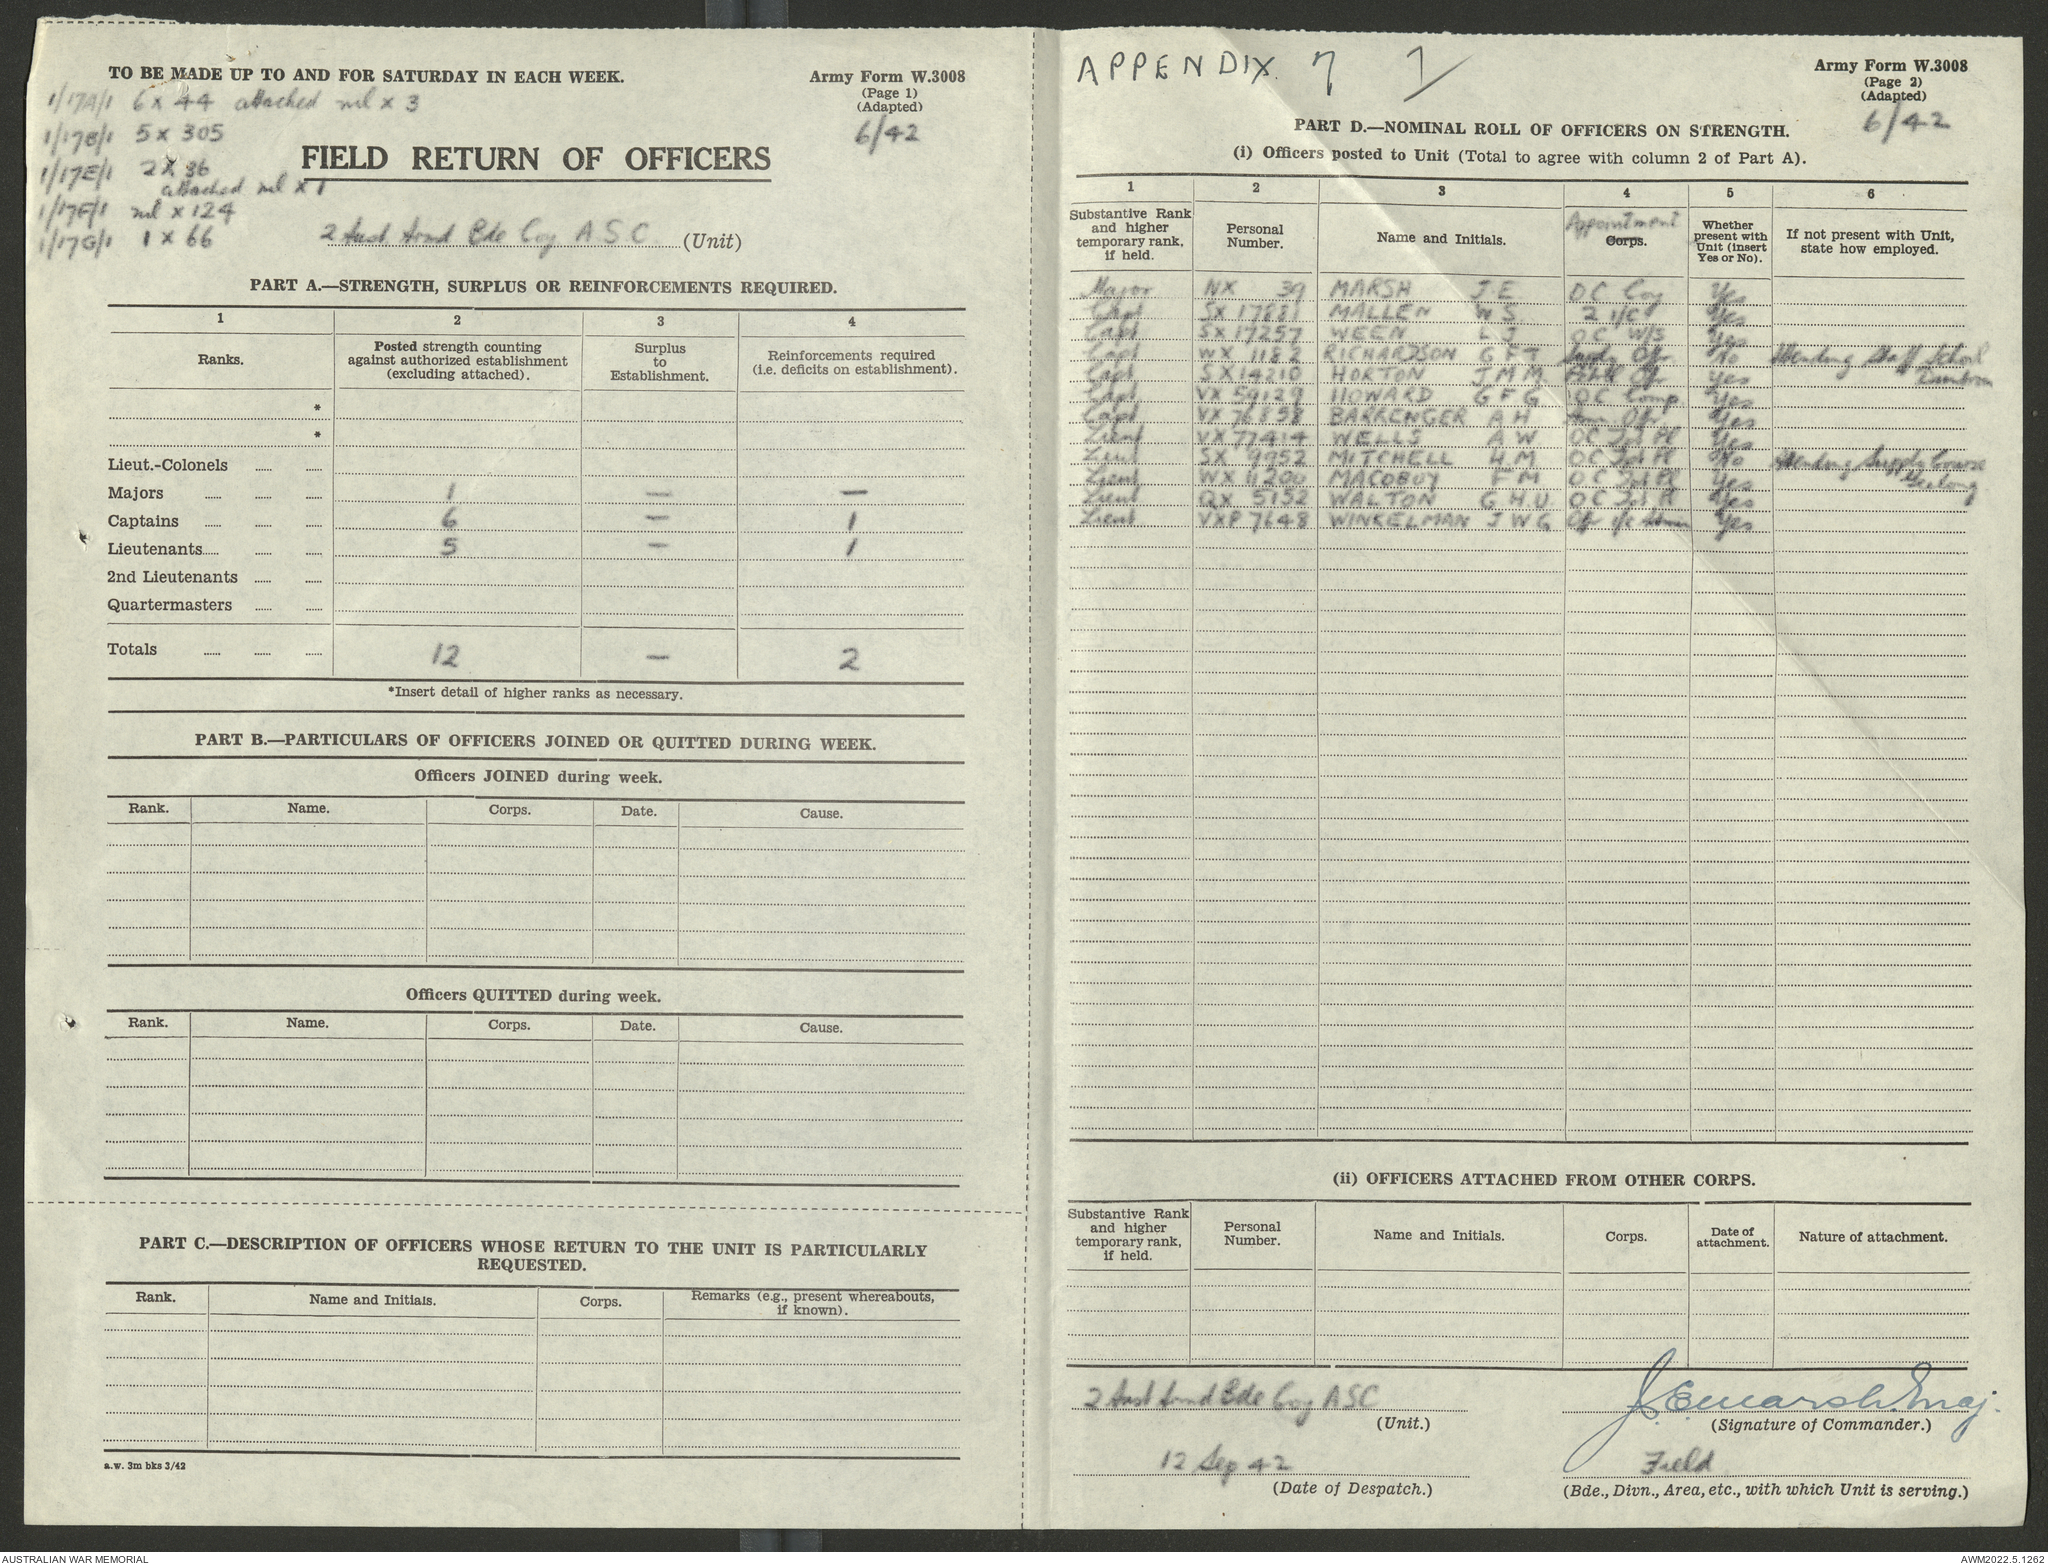 TO BE MADE UP TO AND FOR SATURDAY IN EACH WEEK.
Army Form W.3008
(Page 1)
(Adapted)
6/42
1/17A/1 6 x 44 attached nil x 3
1/17B/1 5 x 305
1/17E/1 2 x 36
attached nil x 1
1/17F/1 nil x 124
1/17G/1 1 x 66
FIELD RETURN OF OFFICERS
2 Aust Armd Bde Coy A.S.C. (Unit)
PART A.—STRENGTH, SURPLUS OR REINFORCEMENTS REQUIRED.
1 2 3 4
Ranks. Posted strength counting against authorized establishment (excluding attached). Surplus to Establishment. Reinforcements required (i.e. deficits on establishment).
*
*
Lieut.-Colonels
Majors 1 — —
Captains 6 — 1
Lieutenants 5 — 1
2nd Lieutenants
Quartermasters
Totals 12 — 2
*Insert detail of higher ranks as necessary.
PART B.—PARTICULARS OF OFFICERS JOINED OR QUITTED DURING WEEK.
Officers JOINED during week.
Rank. Name. Corps. Date. Cause.
Officers QUITTED during week.
Rank. Name. Corps. Date. Cause.
PART C.—DESCRIPTION OF OFFICERS WHOSE RETURN TO THE UNIT IS PARTICULARLY
REQUESTED.
Rank. Name and Initials. Corps. Remarks (e.g., present whereabouts, if known).
a.w. 3m bks 3/42
APPENDIX 7 7
Army Form W.3008
(Page 2)
(Adapted)
6/42
PART D.—NOMINAL ROLL OF OFFICERS ON STRENGTH.
(i) Officers posted to Unit (Total to agree with column 2 of Part A).
1 2 3 4 5 6
Substantive Rank and higher temporary rank, if held. Personal Number. Name and Initials. Appointment Corps. Whether present with Unit (insert Yes or No). If not present with Unit, state how employed.
Major NX 39 MARSH J.E OC Coy Yes
Capt SX 17881 MALLEN W S 2 i/c Yes
Capt SX 17257 WEEN L J OC W/S Yes
Capt WX 1182 RICHARDSON G F T Supply Ofr No Attending Staff School
Duntroon
Capt SX 14210 HORTON J M M Ofr Yes
Capt VX 59129 HOWARD G F G OC Comp. Yes
Capt VX 76858 BARRENGER A H Ofr Yes
Lieut VX 77414 WELLS A W OC Yes
Lieut SX 9952 MITCHELL H M OC No Attending Supply Course
Geelong
Lieut WX 11200 MACOBOY F M OC Yes
Lieut QX 5152 WALTON G.H.U OC Yes
Lieut VXP 7648 WINKELMAN J W G Ofr i/c Admin Yes
(ii) OFFICERS ATTACHED FROM OTHER CORPS.
Substantive Rank and higher temporary rank, if held. Personal Number. Name and Initials. Corps. Date of attachment. Nature of attachment.
2 Aust Armd Bde Coy ASC
(Unit.)
J.E.Marsh. Maj.
(Signature of Commander.)
12 Sep 42
(Date of Despatch.)
Field
(Bde., Divn., Area, etc., with which Unit is serving.)
AUSTRALIAN WAR MEMORIAL
AWM2022.5.1262